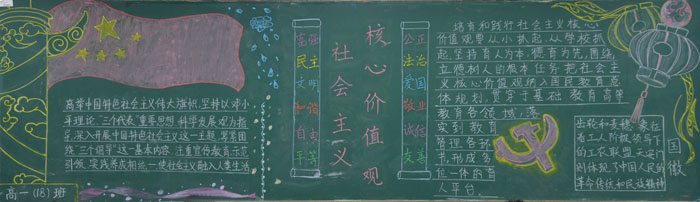 高举中国特色社会主义伟大旗帜,坚持以邓小
平理论“三个代表”重要思想,科学发展观为指
导,深入开展中国特色社会主义这一主题,要紧围
绕“三个倡导”这一基本内容,注重宣传教育,示范
引领,实践养成相统一,使社会主义融入人生生活
高一(18)班
富强
民主
文明
和谐
自由
平等
社会主义
核心价值观
公正
法治
爱国
敬业
诚信
友善
培育和践行社会主义核心
价值观要从小抓起,从学校抓
起,坚持育人为本,德育为先,围绕
立德树人的根本任务把社会主
义核心价值观纳入国民教育总
体规划,贯穿于基础教育高等
教育各领域,落
实到教育
管理各环
书,形成多
位一体的育
人平台
齿轮和麦穗 象征
着工人阶级领导下
的工农联盟,天安门
则体现了中国人民的
革命传统和民族精神
国徽